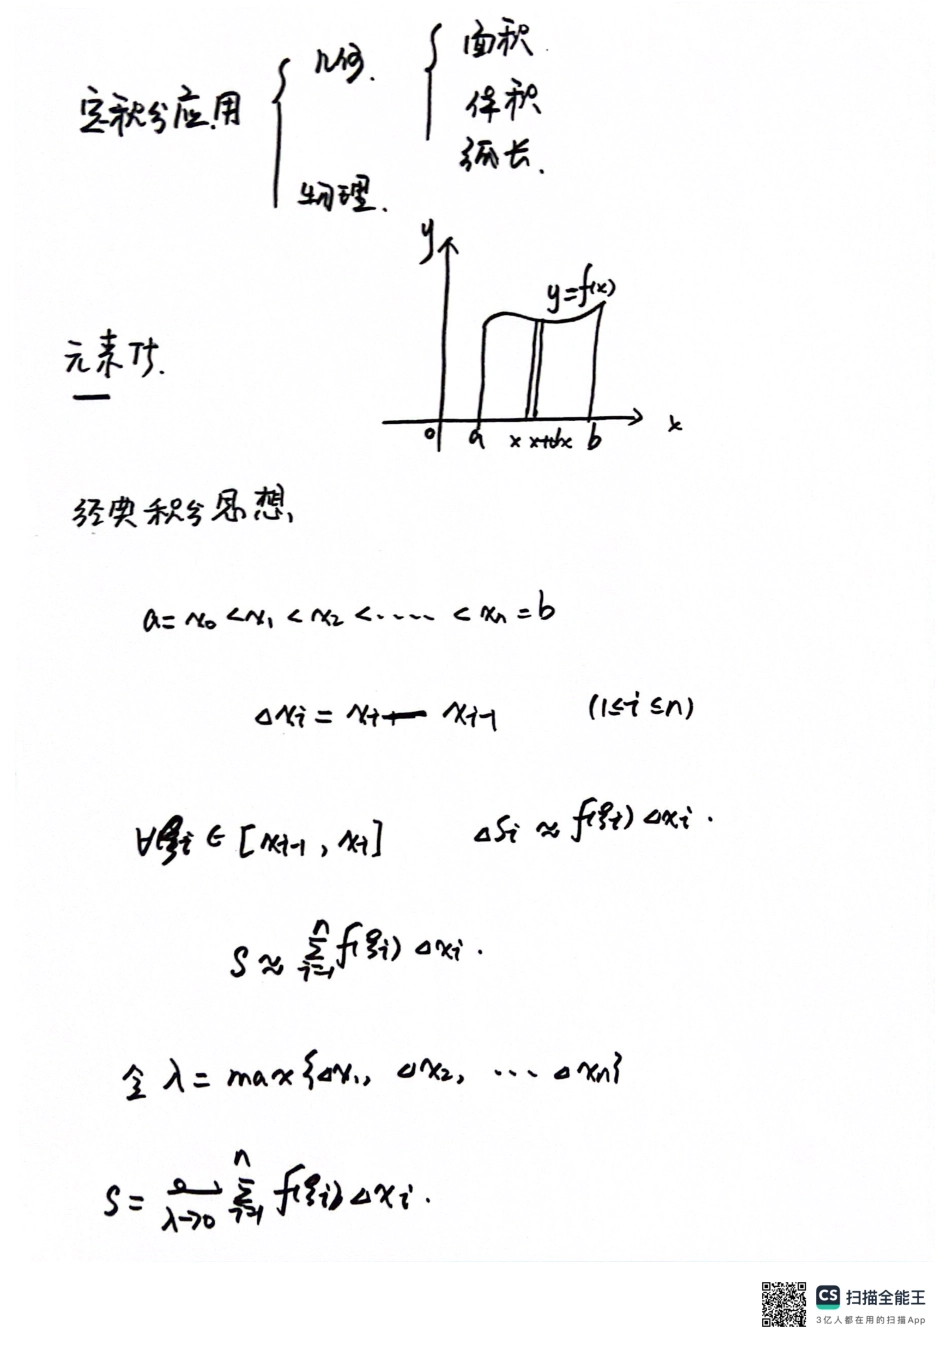 定积分应用 { 几何. { 面积.
体积
弧长.
物理.
y
y=f(x)
元素法.
0 a x x+dx b x
经典积分思想,
a = x₀ < x₁ < x₂ < ····· < xₙ = b
Δxᵢ = xᵢ — xᵢ₋₁ (1≤i≤n)
∀ξᵢ ∈ [xᵢ₋₁, xᵢ] ΔSᵢ ≈ f(ξᵢ) Δxᵢ.
S ≈ ∑ᵢ₌₁ⁿ f(ξᵢ) Δxᵢ.
令 λ = max{Δx₁, Δx₂, ··· Δxₙ}
S = λ→0 ∑ᵢ₌₁ⁿ f(ξᵢ) Δxᵢ.
CS 扫描全能王
3亿人都在用的扫描App